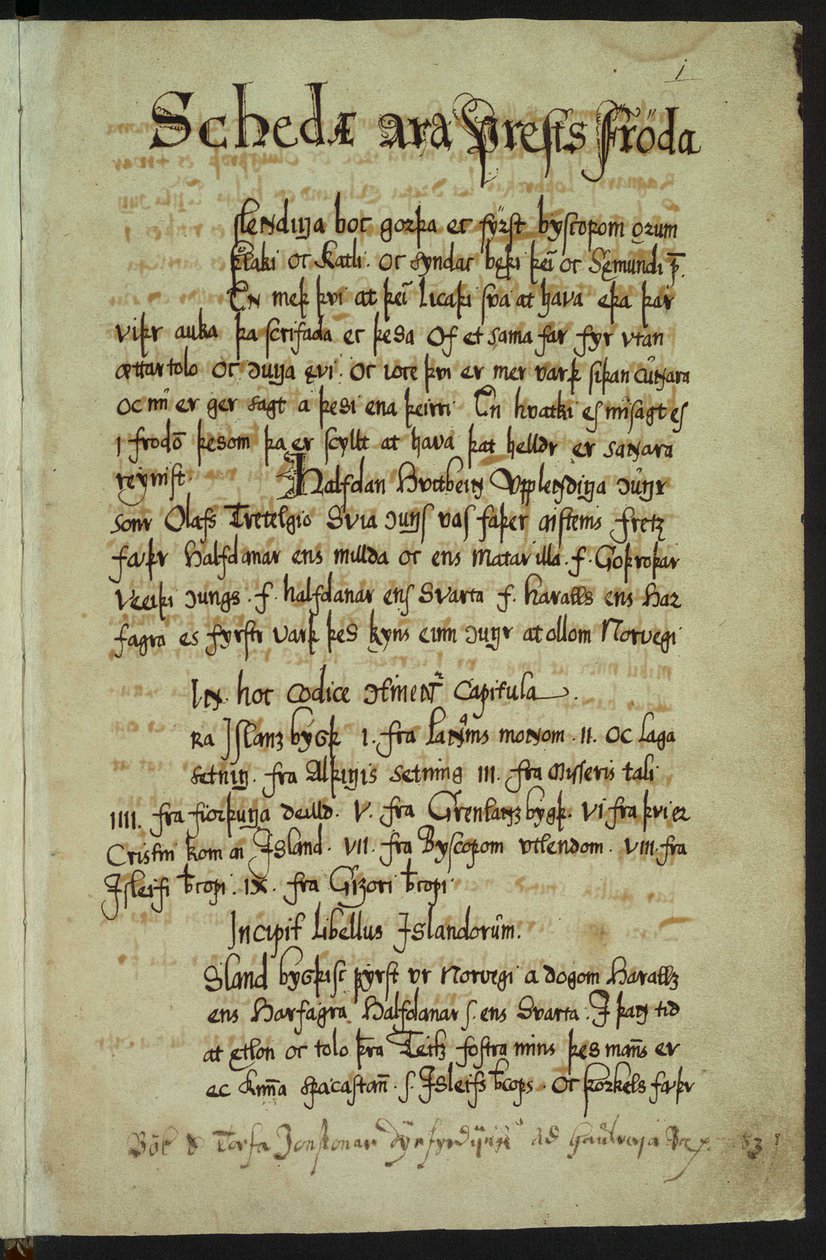 1
Schedæ ara prests fröda
slendiŋa boc gorþa ec fyrst byscopom ǫrum
þlaki oc Katli. oc syndac bęþi þeī oc Sęmundi p̄.
En meþ þvi at þeī licaþi sva at hava eþa þar
viþr auka þa scrifada ec þesa of et sama far fyr utan
ættar tolo oc ɔuŋa ęvi. oc ioce þvi er mer varþ siþan cūɴara
oc nu er ger sagt a þesi ena þeirri. En hvatki es missagt es
i frodō þesom þa er scyllt at hava þat helldr er saɴara
reynist. Halfdan Hvitbeiɴ Upplendiŋa ɔuŋr
sonr Olafs Tretelgio Svia ɔuŋs vas faþer aisteins fretz
faþr Halfdanar ens millda oc ens matar illa. f. Goþroþar
Veiþi ɔungs. f. halfdanar ens Svarta f. haralls ens Har
fagra es fyrstr varþ þes kyns einn ɔuŋr at ollom Norvegi
Iɴ hoc codice ɔtinent᷑ Capitula
ra Islanz bygþ I. fra lanᷓms moɴom. II. oc laga
setniŋ. fra Alþiŋis setning III. fra Misseris tali
IIII. fra fiorþuŋa deilld. V. fra Grenlanz bygþ. VI fra þvi er
Cristni kom ai Island. VII. fra Byscopom utlendom. VIII. fra
Isleifi b̄copi. IX. fra Gizori b̄copi.
Incipit Libellus Islandorum.
Sland bygþisc fyrst ur Norvegi a dogom Haralls
ens Harfagra Halfdanar s. ens Svarta. I þaɴ tid
at ętlon oc tolo þra Teitz fostra mins þes maɴs er
ec kuɴa spacastan. s. Isleifs b̄cops. oc þorkels faþr
Bök S Torfa Jonssonar